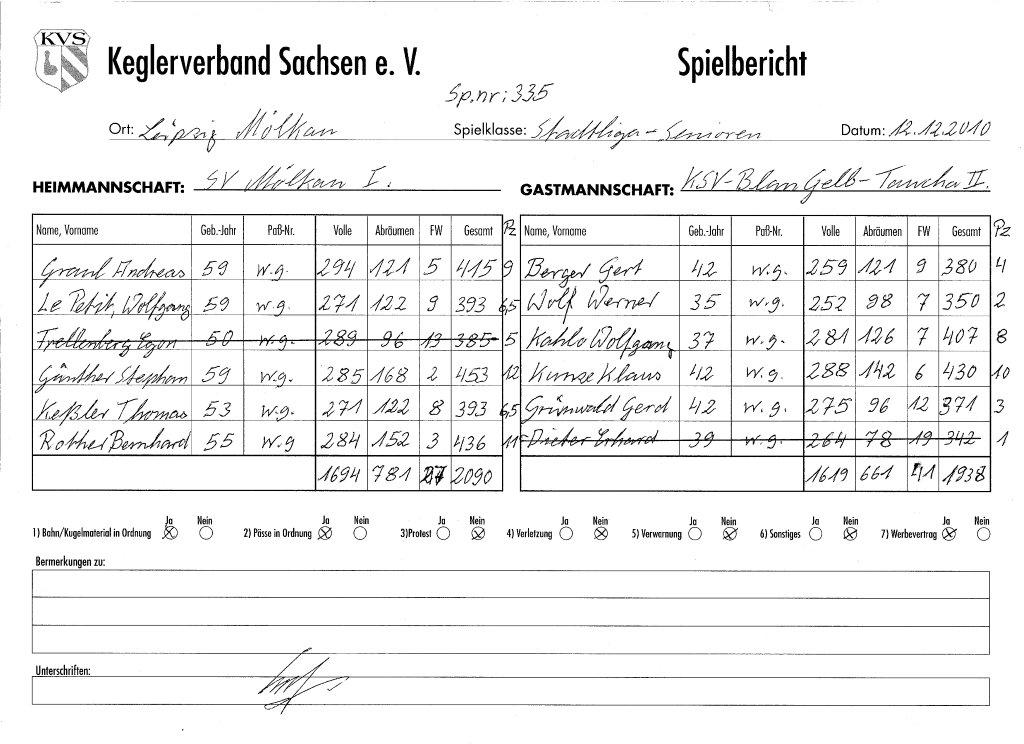 KVS
Keglerverband Sachsen e. V. Spielbericht
Sp.nr: 335
Ort: Leipzig Mölkau Spielklasse: Stadtliga - Senioren Datum: 12.12.2010
HEIMMANNSCHAFT: SV Mölkau I. GASTMANNSCHAFT: KSV-Blau Gelb-Taucha II.
Name, Vorname Geb.-Jahr Paß-Nr. Volle Abräumen FW Gesamt Pz Name, Vorname Geb.-Jahr Paß-Nr. Volle Abräumen FW Gesamt Pz
Graul Andreas 59 w.g. 294 121 5 415 9 Berger Gert 42 w.g. 259 121 9 380 4
Le Petit, Wolfgang 59 w.g. 271 122 9 393 6,5 Wolf Werner 35 w.g. 252 98 7 350 2
Trellenberg Egon 50 w.g. 289 96 13 385 5 Kahlo Wolfgang 37 w.g. 281 126 7 407 8
Günther Stephan 59 w.g. 285 168 2 453 12 Kunze Klaus 42 w.g. 288 142 6 430 10
Keßler Thomas 53 w.g. 271 122 8 393 6,5 Grünwald Gerd 42 w.g. 275 96 12 371 3
Rother Bernhard 55 w.g 284 152 3 436 11 Dieter Erhard 39 w.g. 264 78 19 342 1
1694 781 27 2090 1619 661 41 1938
Ja Nein Ja Nein Ja Nein Ja Nein Ja Nein Ja Nein Ja Nein
1) Bahn/Kugelmaterial in Ordnung 2) Pässe in Ordnung 3)Protest 4) Verletzung 5) Verwarnung 6) Sonstiges 7) Werbevertrag
Bermerkungen zu:
Unterschriften: